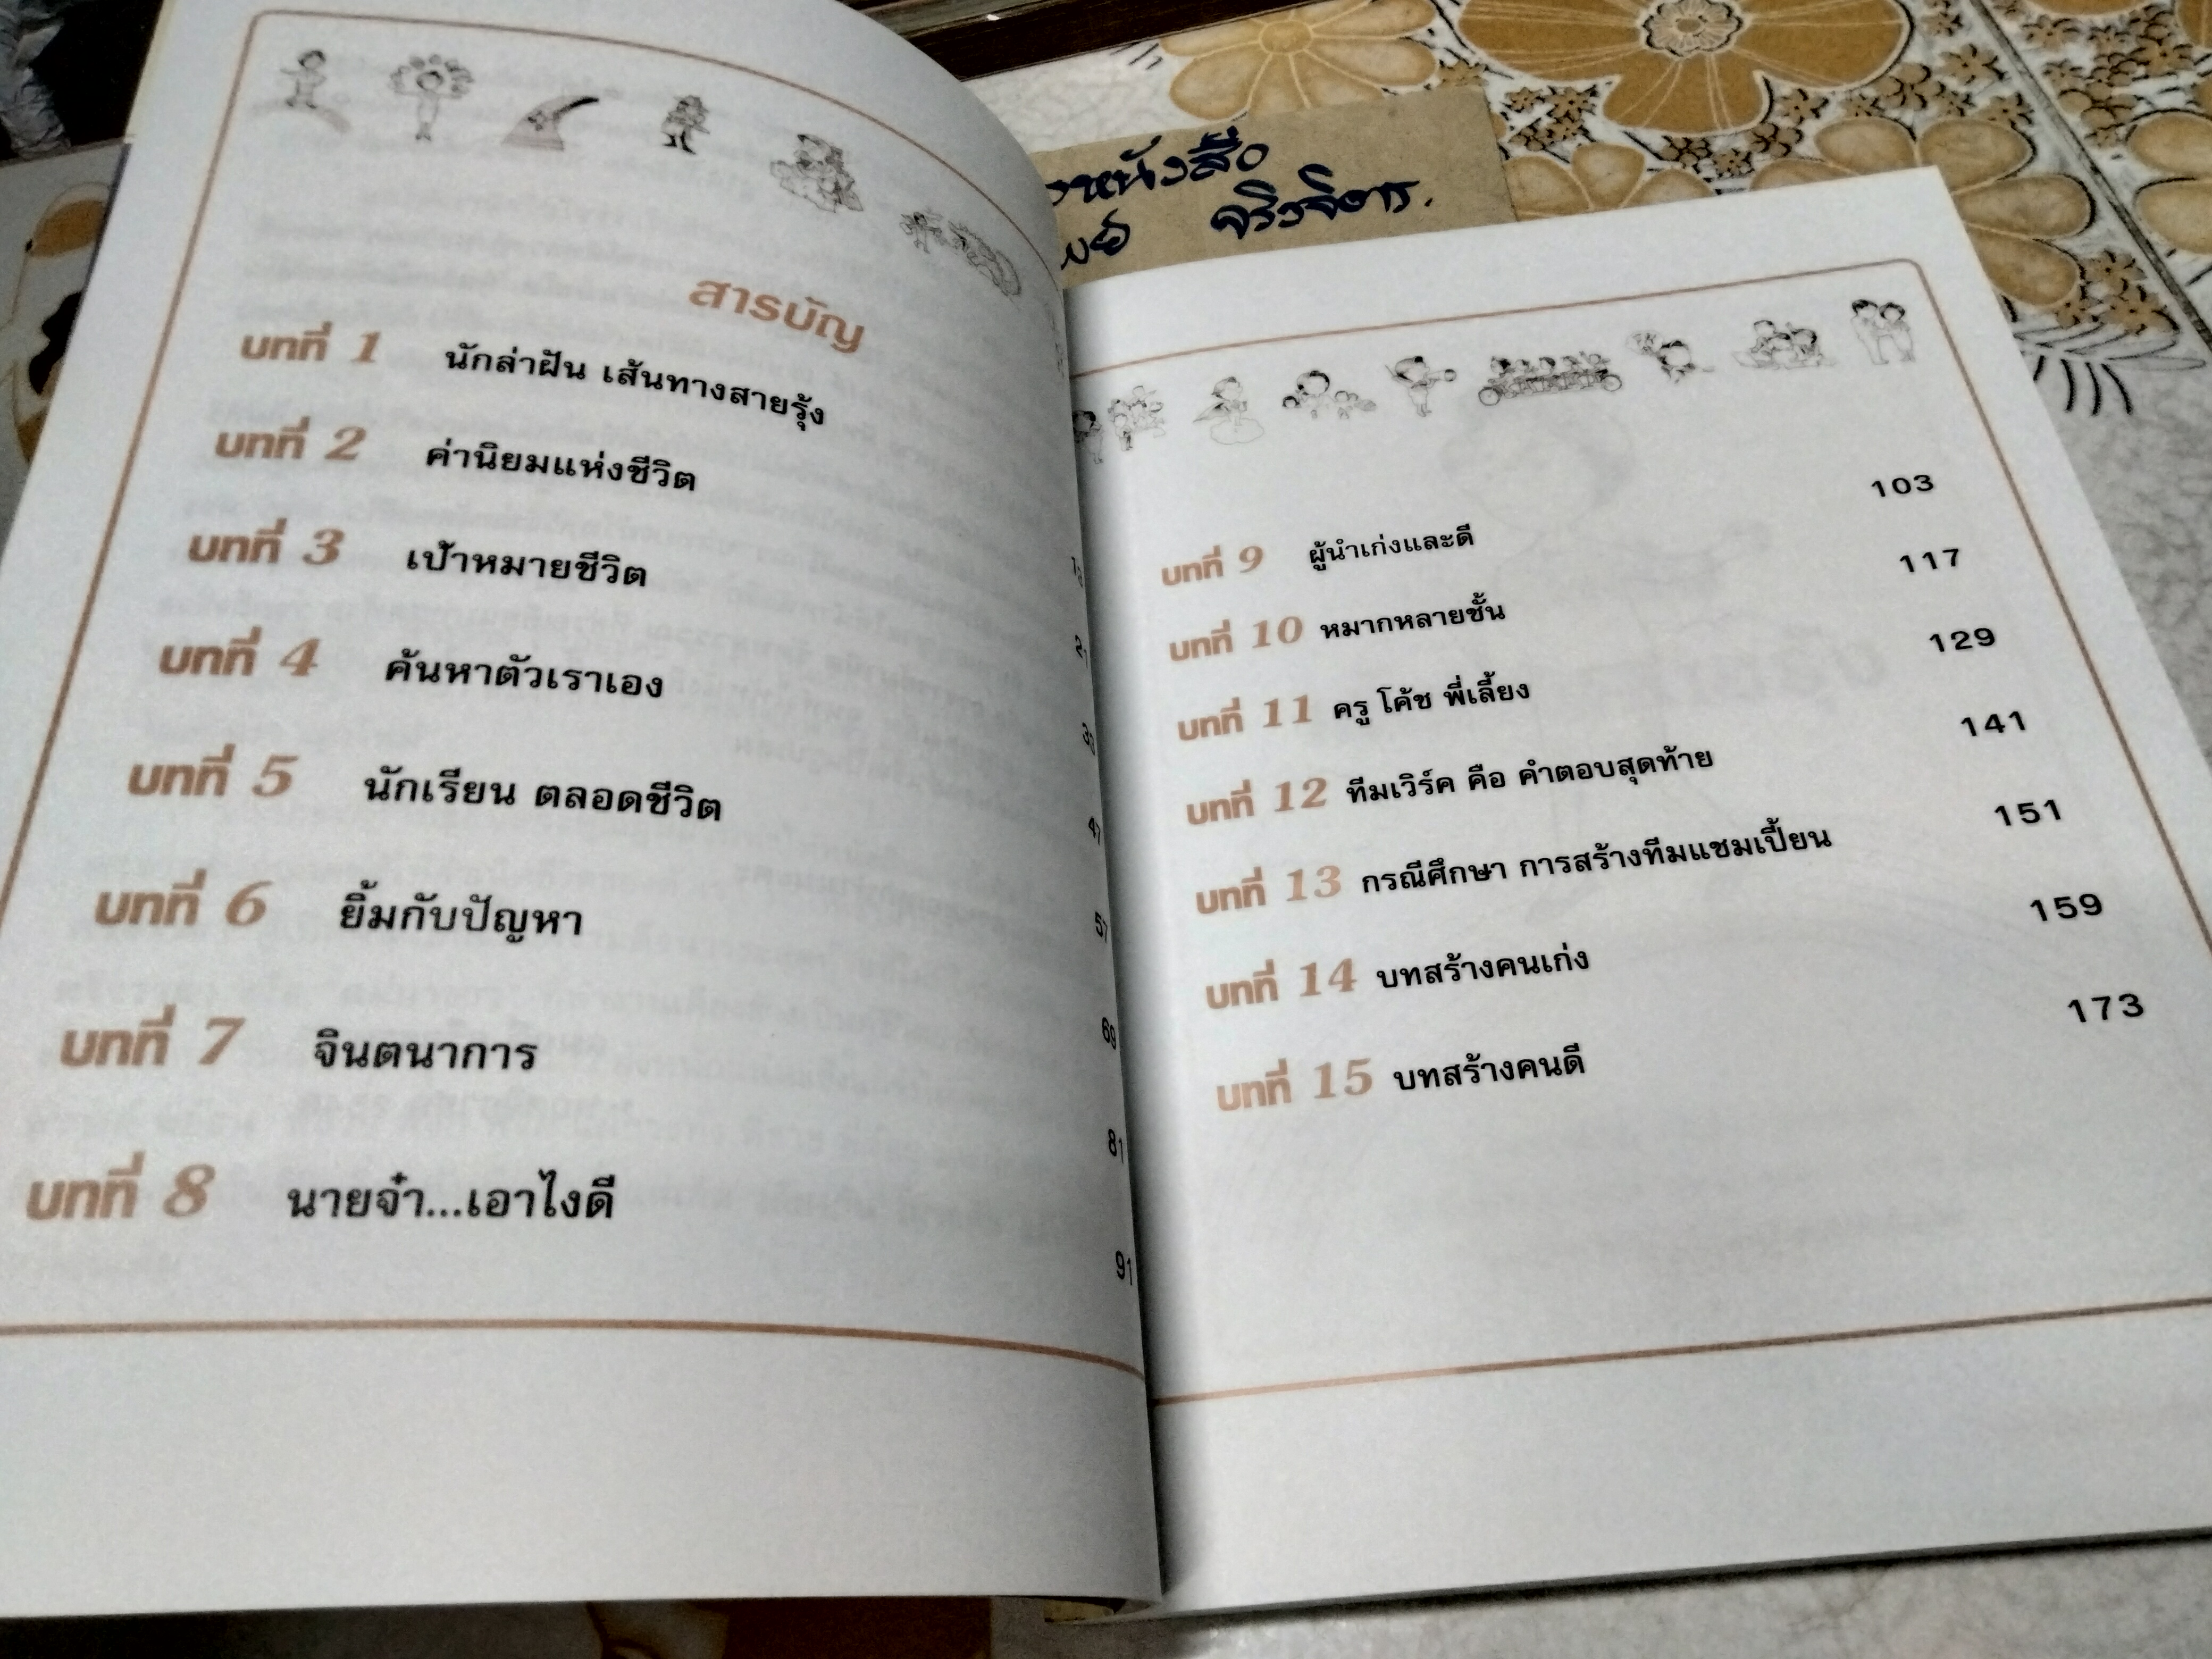 สารบัญ
บทที่ 1 นักล่าฝัน เส้นทางสายรุ้ง
บทที่ 2 ค่านิยมแห่งชีวิต
บทที่ 3 เป้าหมายชีวิต
บทที่ 4 ค้นหาตัวเราเอง
บทที่ 5 นักเรียน ตลอดชีวิต 47
บทที่ 6 ยิ้มกับปัญหา 57
บทที่ 7 จินตนาการ 69
81
บทที่ 8 นายจ๋า...เอาไงดี 91
หนังสือ
จริงจิตร.
บทที่ 9 ผู้นำเก่งและดี 103
บทที่ 10 หมากหลายชั้น 117
บทที่ 11 ครู โค้ช พี่เลี้ยง 129
บทที่ 12 ทีมเวิร์ค คือ คำตอบสุดท้าย 141
บทที่ 13 กรณีศึกษา การสร้างทีมแชมเปี้ยน 151
บทที่ 14 บทสร้างคนเก่ง 159
บทที่ 15 บทสร้างคนดี 173